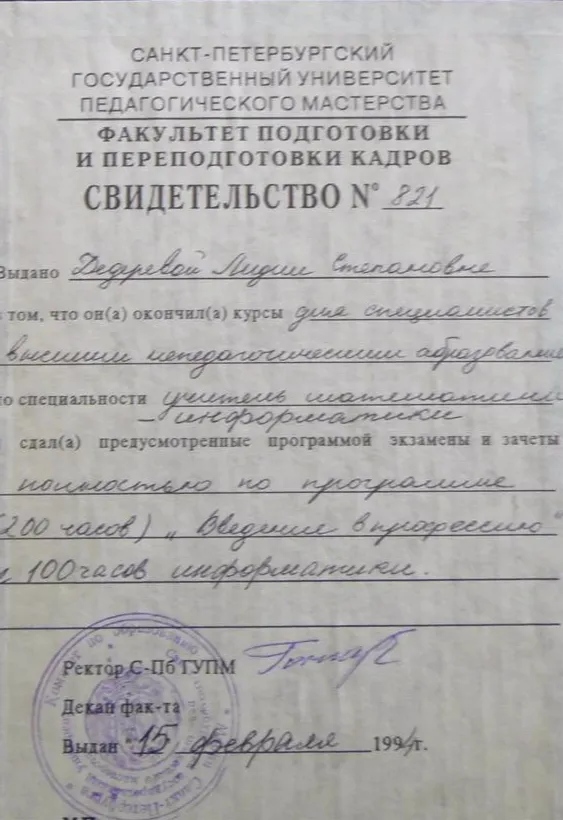 САНКТ-ПЕТЕРБУРГСКИЙ
ГОСУДАРСТВЕННЫЙ УНИВЕРСИТЕТ
ПЕДАГОГИЧЕСКОГО МАСТЕРСТВА
ФАКУЛЬТЕТ ПОДГОТОВКИ
И ПЕРЕПОДГОТОВКИ КАДРОВ
СВИДЕТЕЛЬСТВО № 821
Выдано Дедеревой Лидии Степановне
в том, что он(а) окончил(а) курсы для специалистов
высшим непедагогическим образованием
по специальности учитель математики
– информатики
сдал(а) предусмотренные программой экзамены и зачеты
полностью по программе
(200 часов) „Введение в профессию"
и 100 часов информатики.
Ректор С-Пб ГУПМ
Декан фак-та
Выдан "15 февраля 1994г.